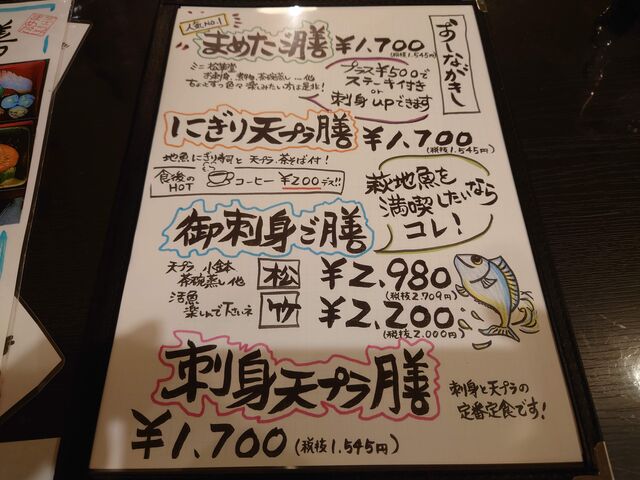 おしながき
人気No.1
まめだご膳 ¥1,700
(税抜1.545円)
ミニ松華堂
お刺身、煮物、茶碗蒸し…他
ちょとずつ色々楽しみたい方は是非!
プラス¥500で
ステーキ付き
or
刺身upできます
にぎり天プラ膳 ¥1,700
(税抜1.545円)
地魚にぎり5貫と天プラ、茶そば付!
食後の
HOT
コーヒー ¥200デス!!
萩地魚を
満喫したいなら
コレ!
御刺身ご膳
天プラ 小鉢
茶碗蒸し他
松 ¥2,980
(税抜2.709円)
活魚
楽しんで下さいネ
竹 ¥2,200
(税抜2.000円)
刺身天プラ膳
刺身と天プラの
定番定食です!
¥1,700 (税抜1.545円)